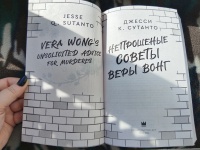 JESSE
Q. SUTANTO
VERA WONG'S
UNSOLICITED ADVICE
FOR MURDERERS
ДЖЕССИ
К. СУТАНТО
НЕПРОШЕНЫЕ
СОВЕТЫ
ВЕРЫ ВОНГ